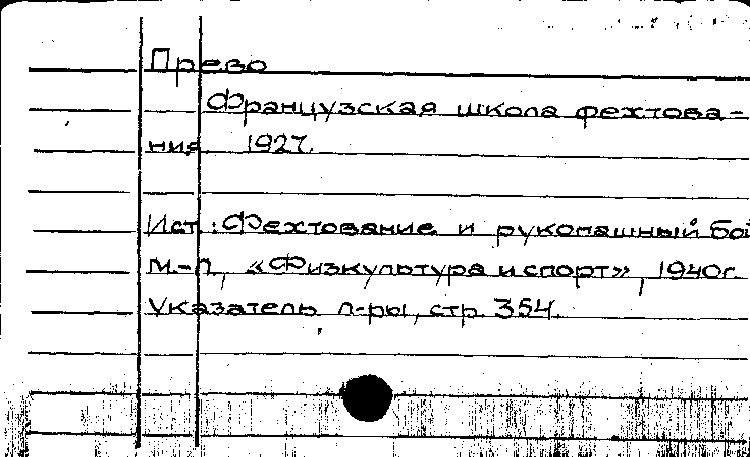 Прево
Французская школа фехтова-
ния 1927.
Ист.: Фехтование и рукопашный бой
М.-Л., «Физкультура и спорт», 1940г.
Указатель л-ры, стр. 354.